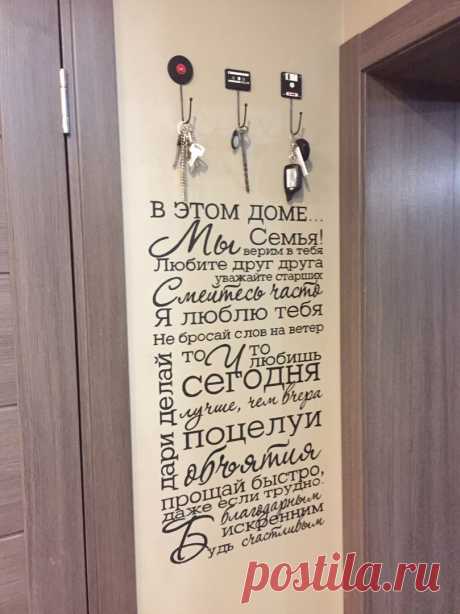 В ЭТОМ ДОМЕ...
Мы Семья!
верим в тебя
Любите друг друга
уважайте старших
Смейтесь часто
Я люблю тебя
Не бросай слов на ветер
делай то Что любишь
сегодня
лучше, чем вчера
дари поцелуи
объятия
прощай быстро,
даже если трудно.
Будь благодарным
искренним
счастливым
postila.ru